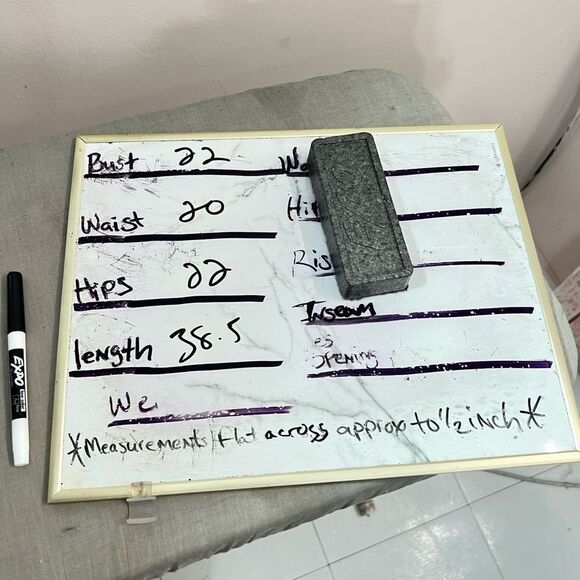 Bust 22
Waist 20
Hips 22
length 38.5
Inseam
OPENING
*Measurements flat across approx to 1/2 inch*
EXPO